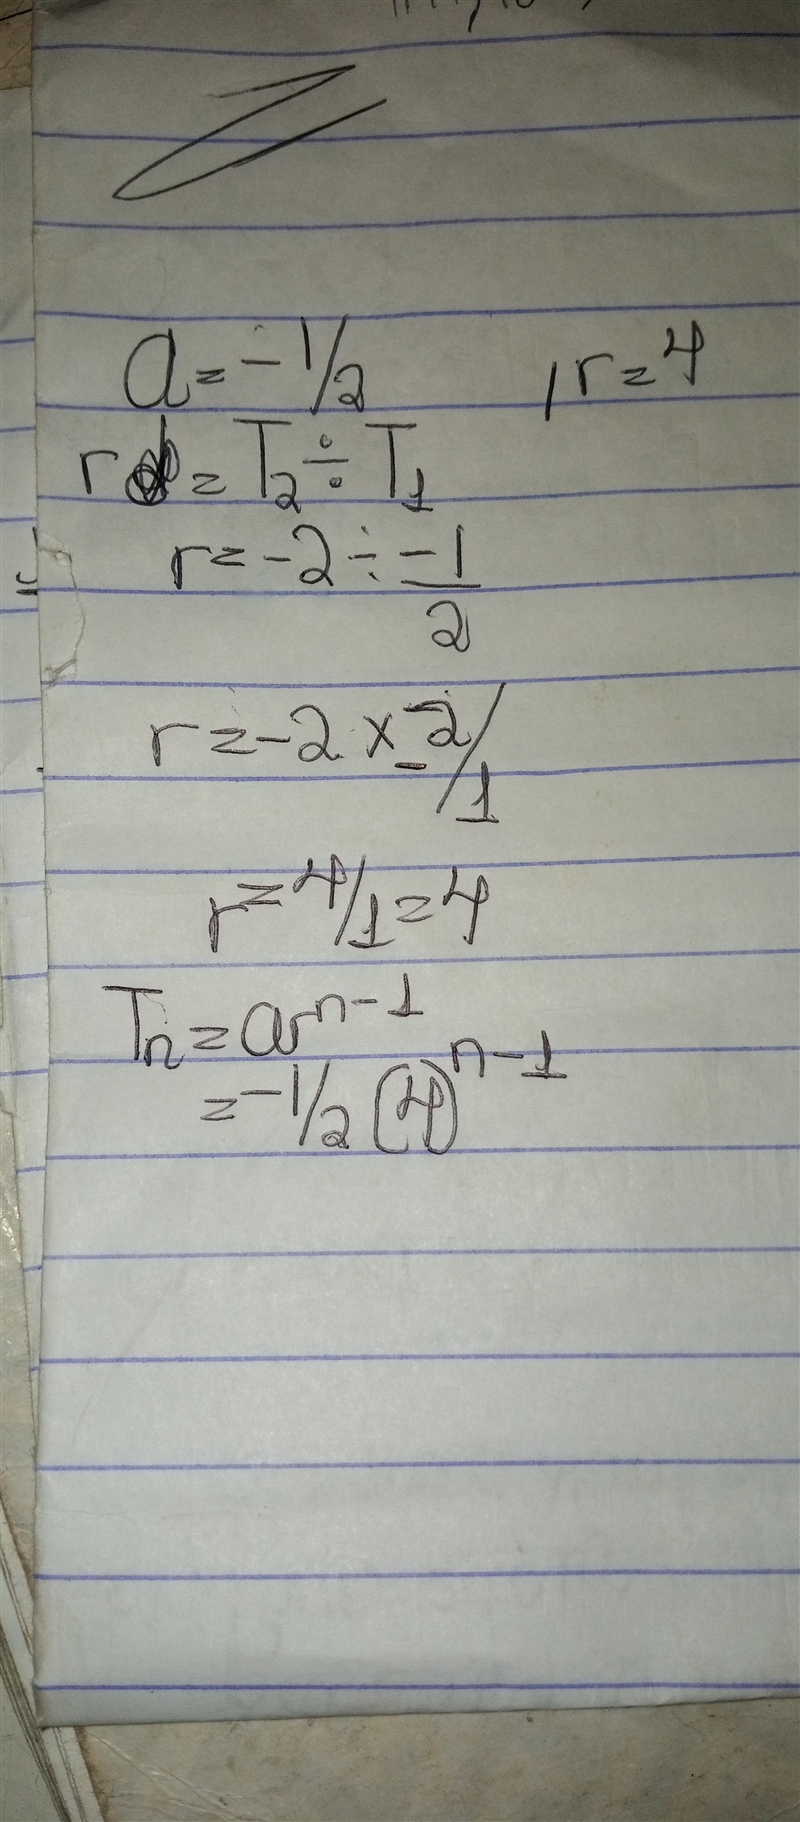 a = -1/2 , r = 4
r = T₂ ÷ T₁
r = -2 ÷ -1/2
r = -2 × -2/1
r = 4/1 = 4
Tₙ = arⁿ⁻¹
= -1/2 (4)ⁿ⁻¹